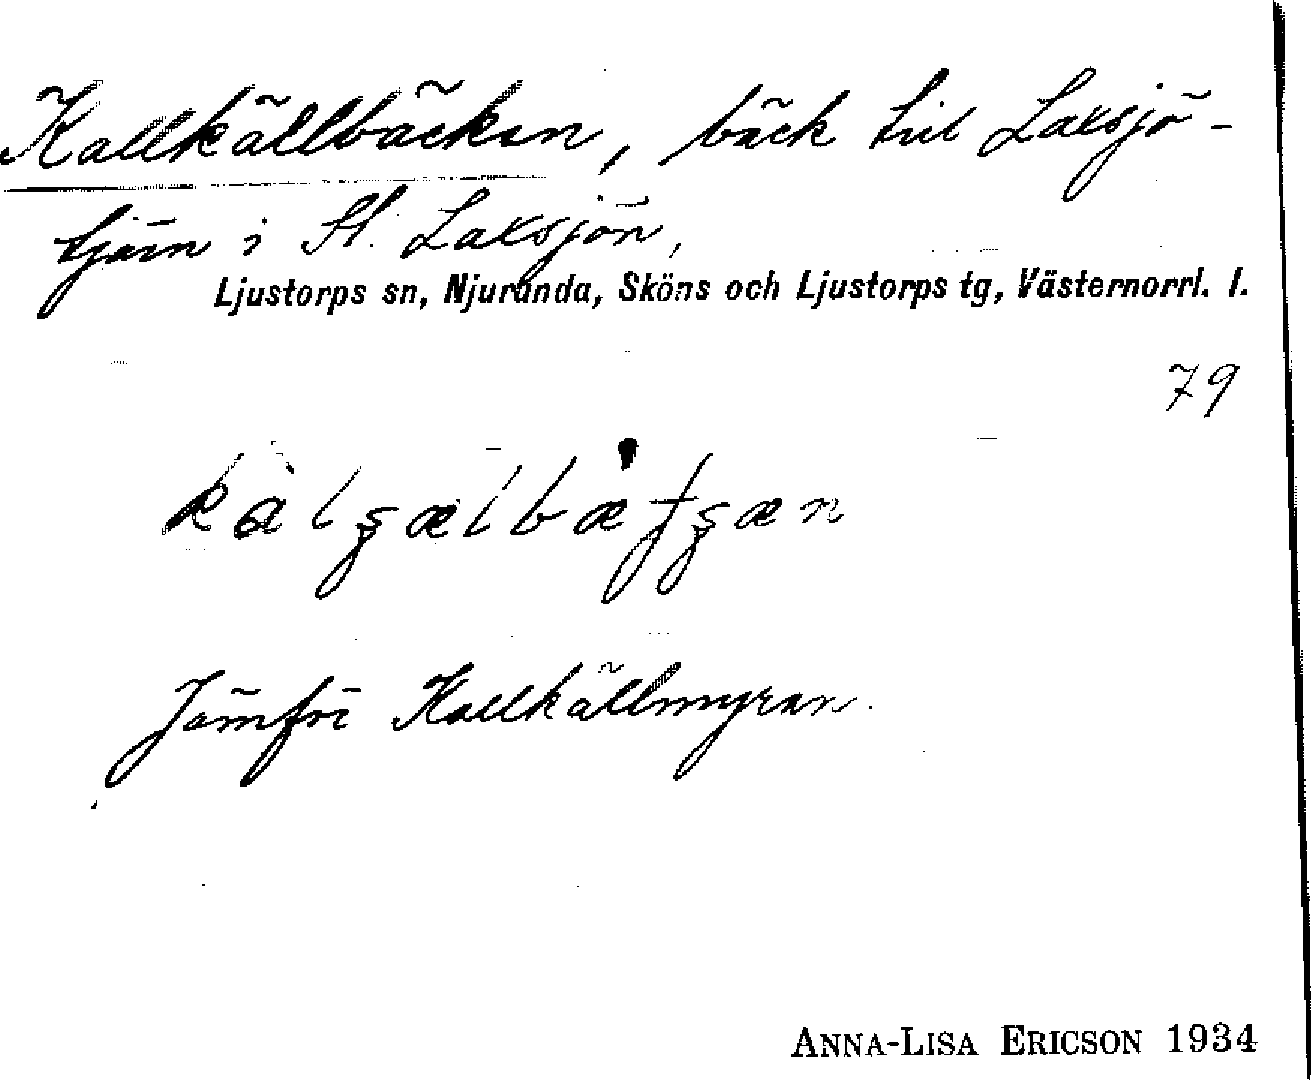 Kallkällbäcken, bäck till Laxsjö-
tjärn i St. Laxsjön,
Ljustorps sn, Njurunda, Sköns och Ljustorps tg, Västernorrl. l.
79
Jämför Kallkällmyran.
ANNA-LISA ERICSON 1934